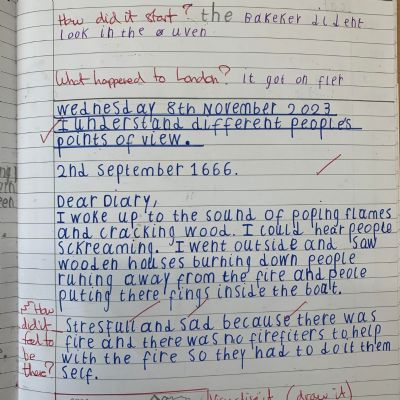 How did it start? the Bakeker dident
look in the uven
What happened to London? it got on fier
wednesday 8th November 2023
I understand different people's
points of view.
2nd September 1666.
Dear Diary,
I woke up to the sound of poping flames
and cracking wood. I could hear people
sckreaming. I went outside and saw
wooden houses burning down people
runing away from the fire and peole
puting there fings inside the boat.
How did it feel to be there?
Stresfull and sad because there was
fire and there was no firefiters to help
with the fire so they had to do it them
self.
(draw it)